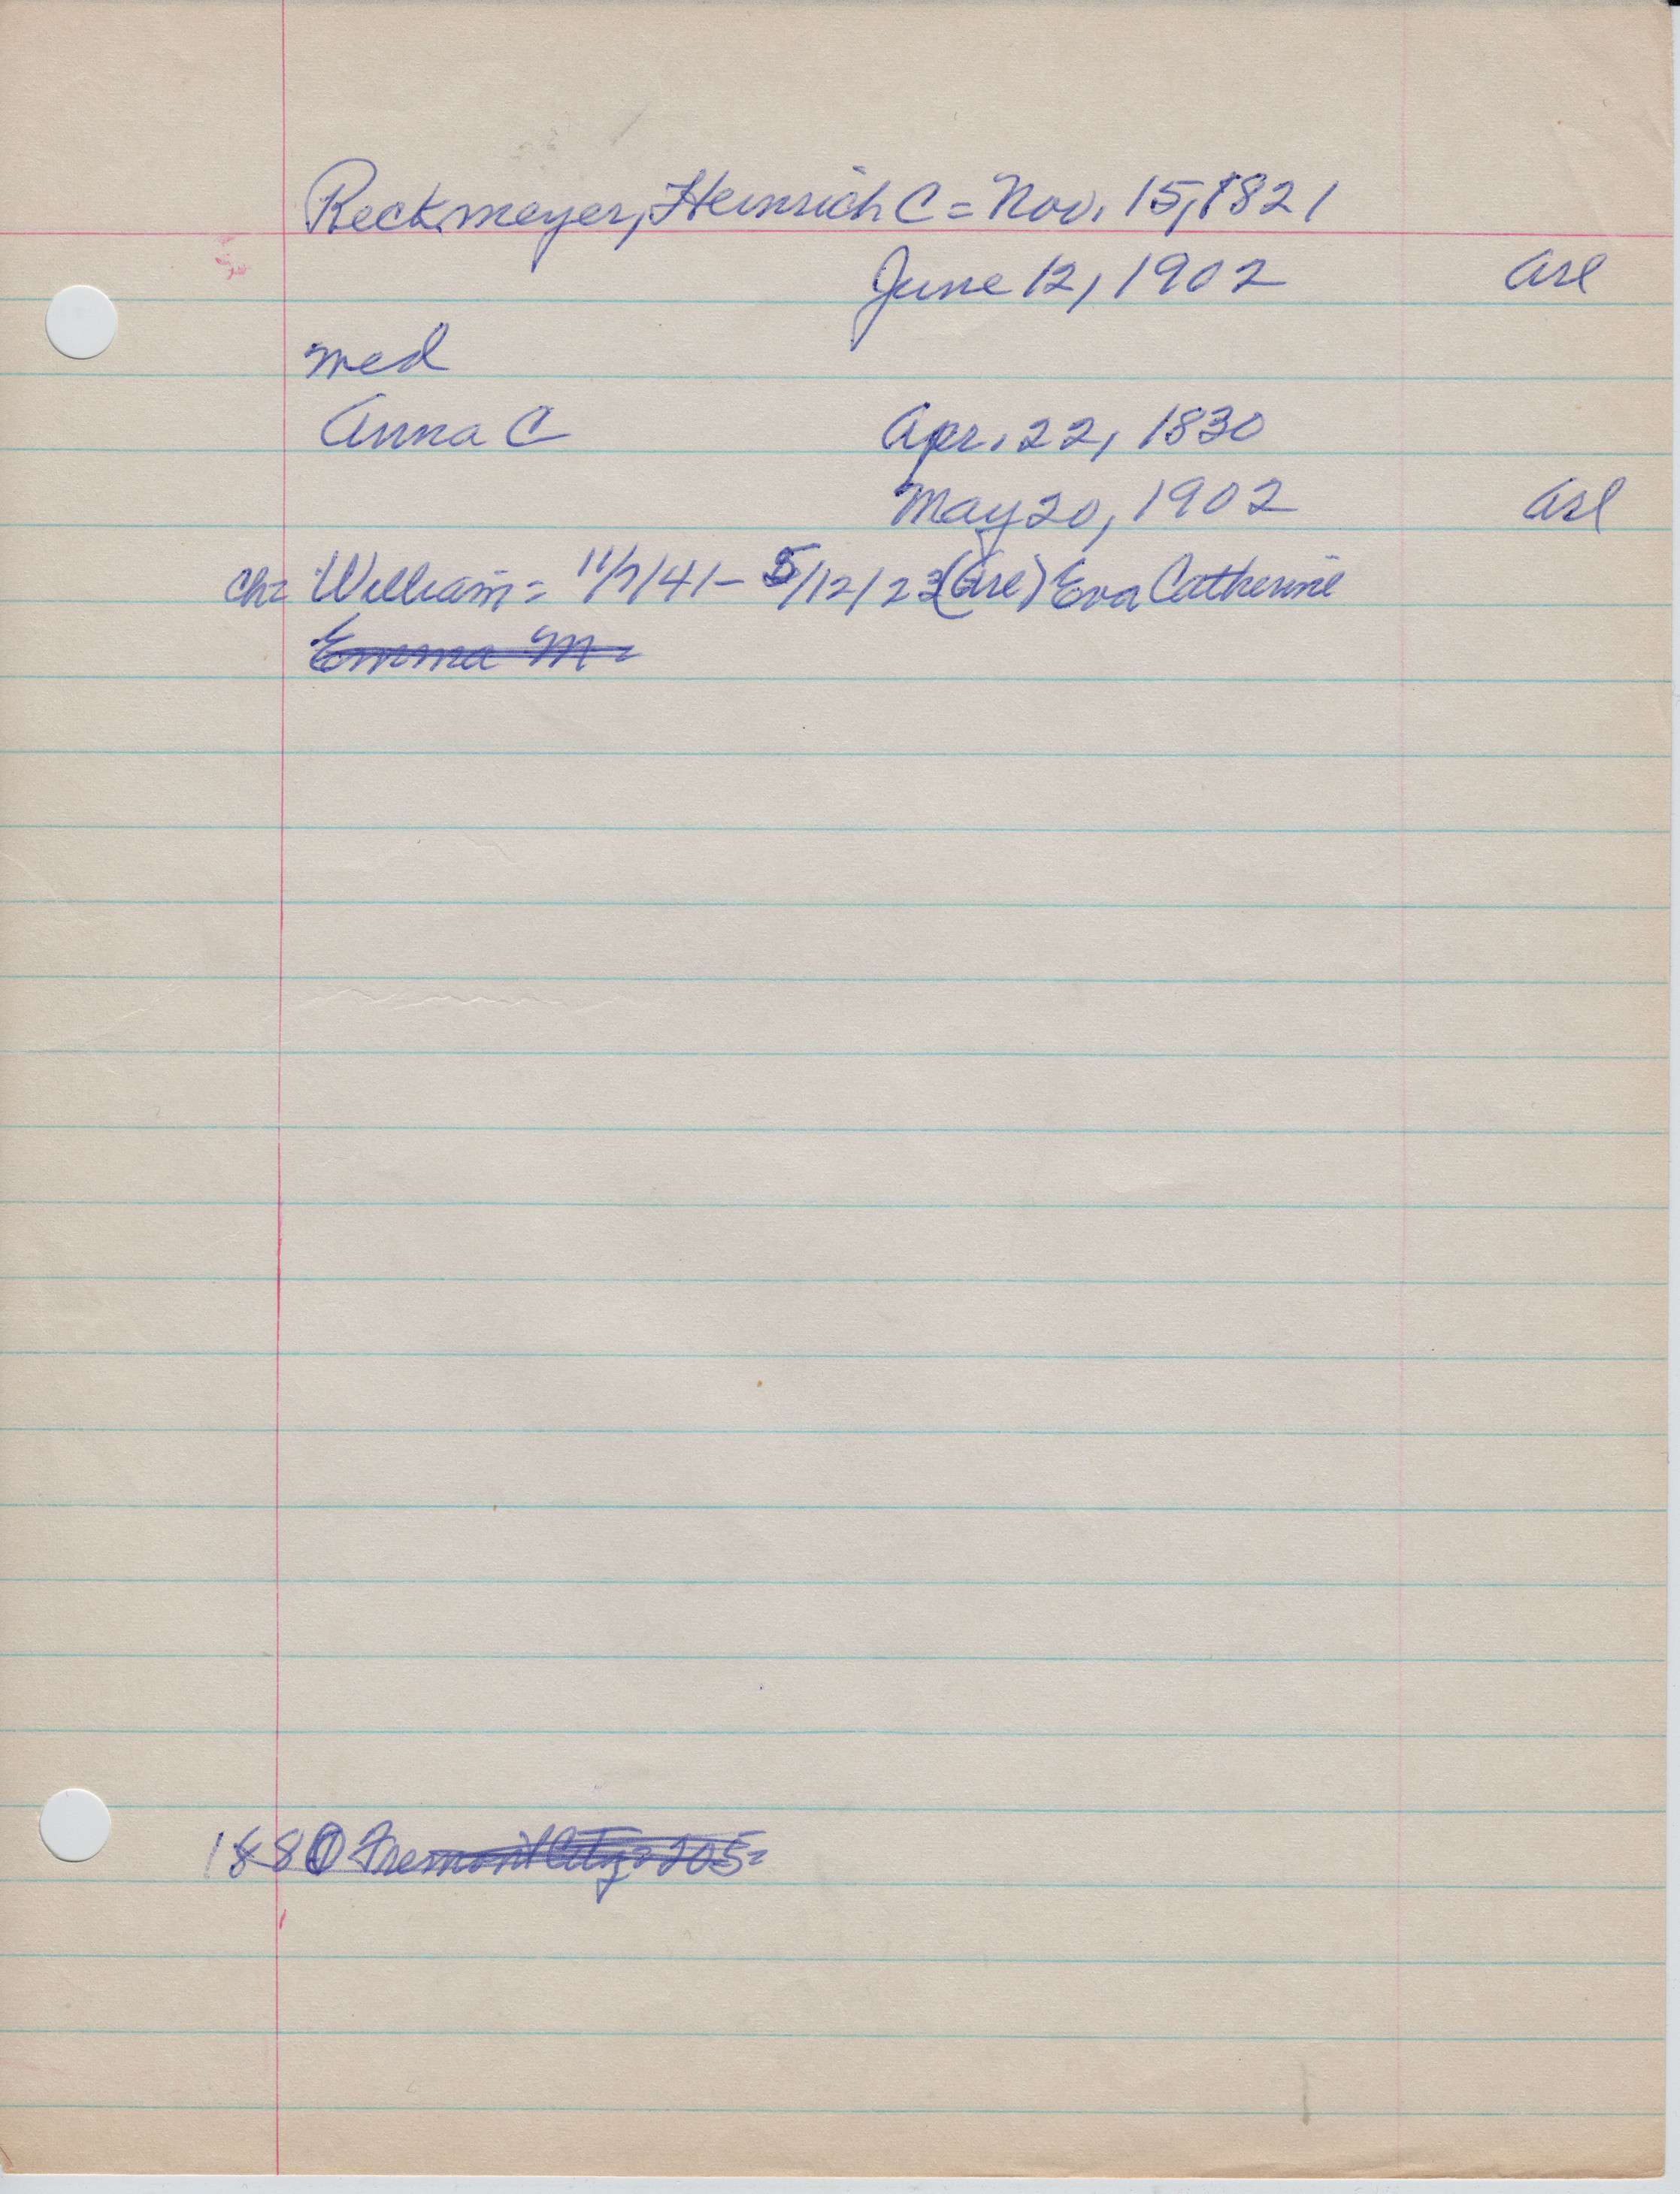 Reckmeyer, Heinrich C = Nov. 15, 1821
June 12, 1902 Arl
med
Anna C Apr. 22, 1830
May 20, 1902 Arl
Ch= William = 11/7/41 - 5/12/23 (Arl) Eva Catherine
Emma M =
1880 Fremont City = 205 =